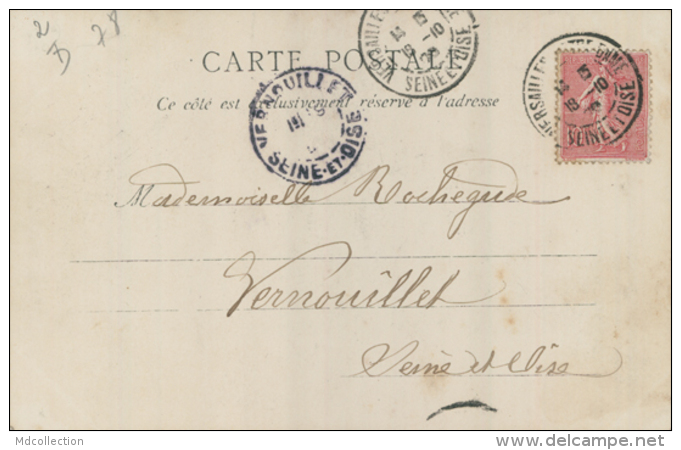 2 78
CARTE POSTALE
Ce côté est exclusivement réservé à l'adresse
VERNOUILLET
SEINE-ET-OISE
VERSAILLES
SEINE ET OISE
VERSAILLES
SEINE ET OISE
Mademoiselle Rochegude
Vernouillet
Seine et Oise
Mdcollection
www.delcampe.net